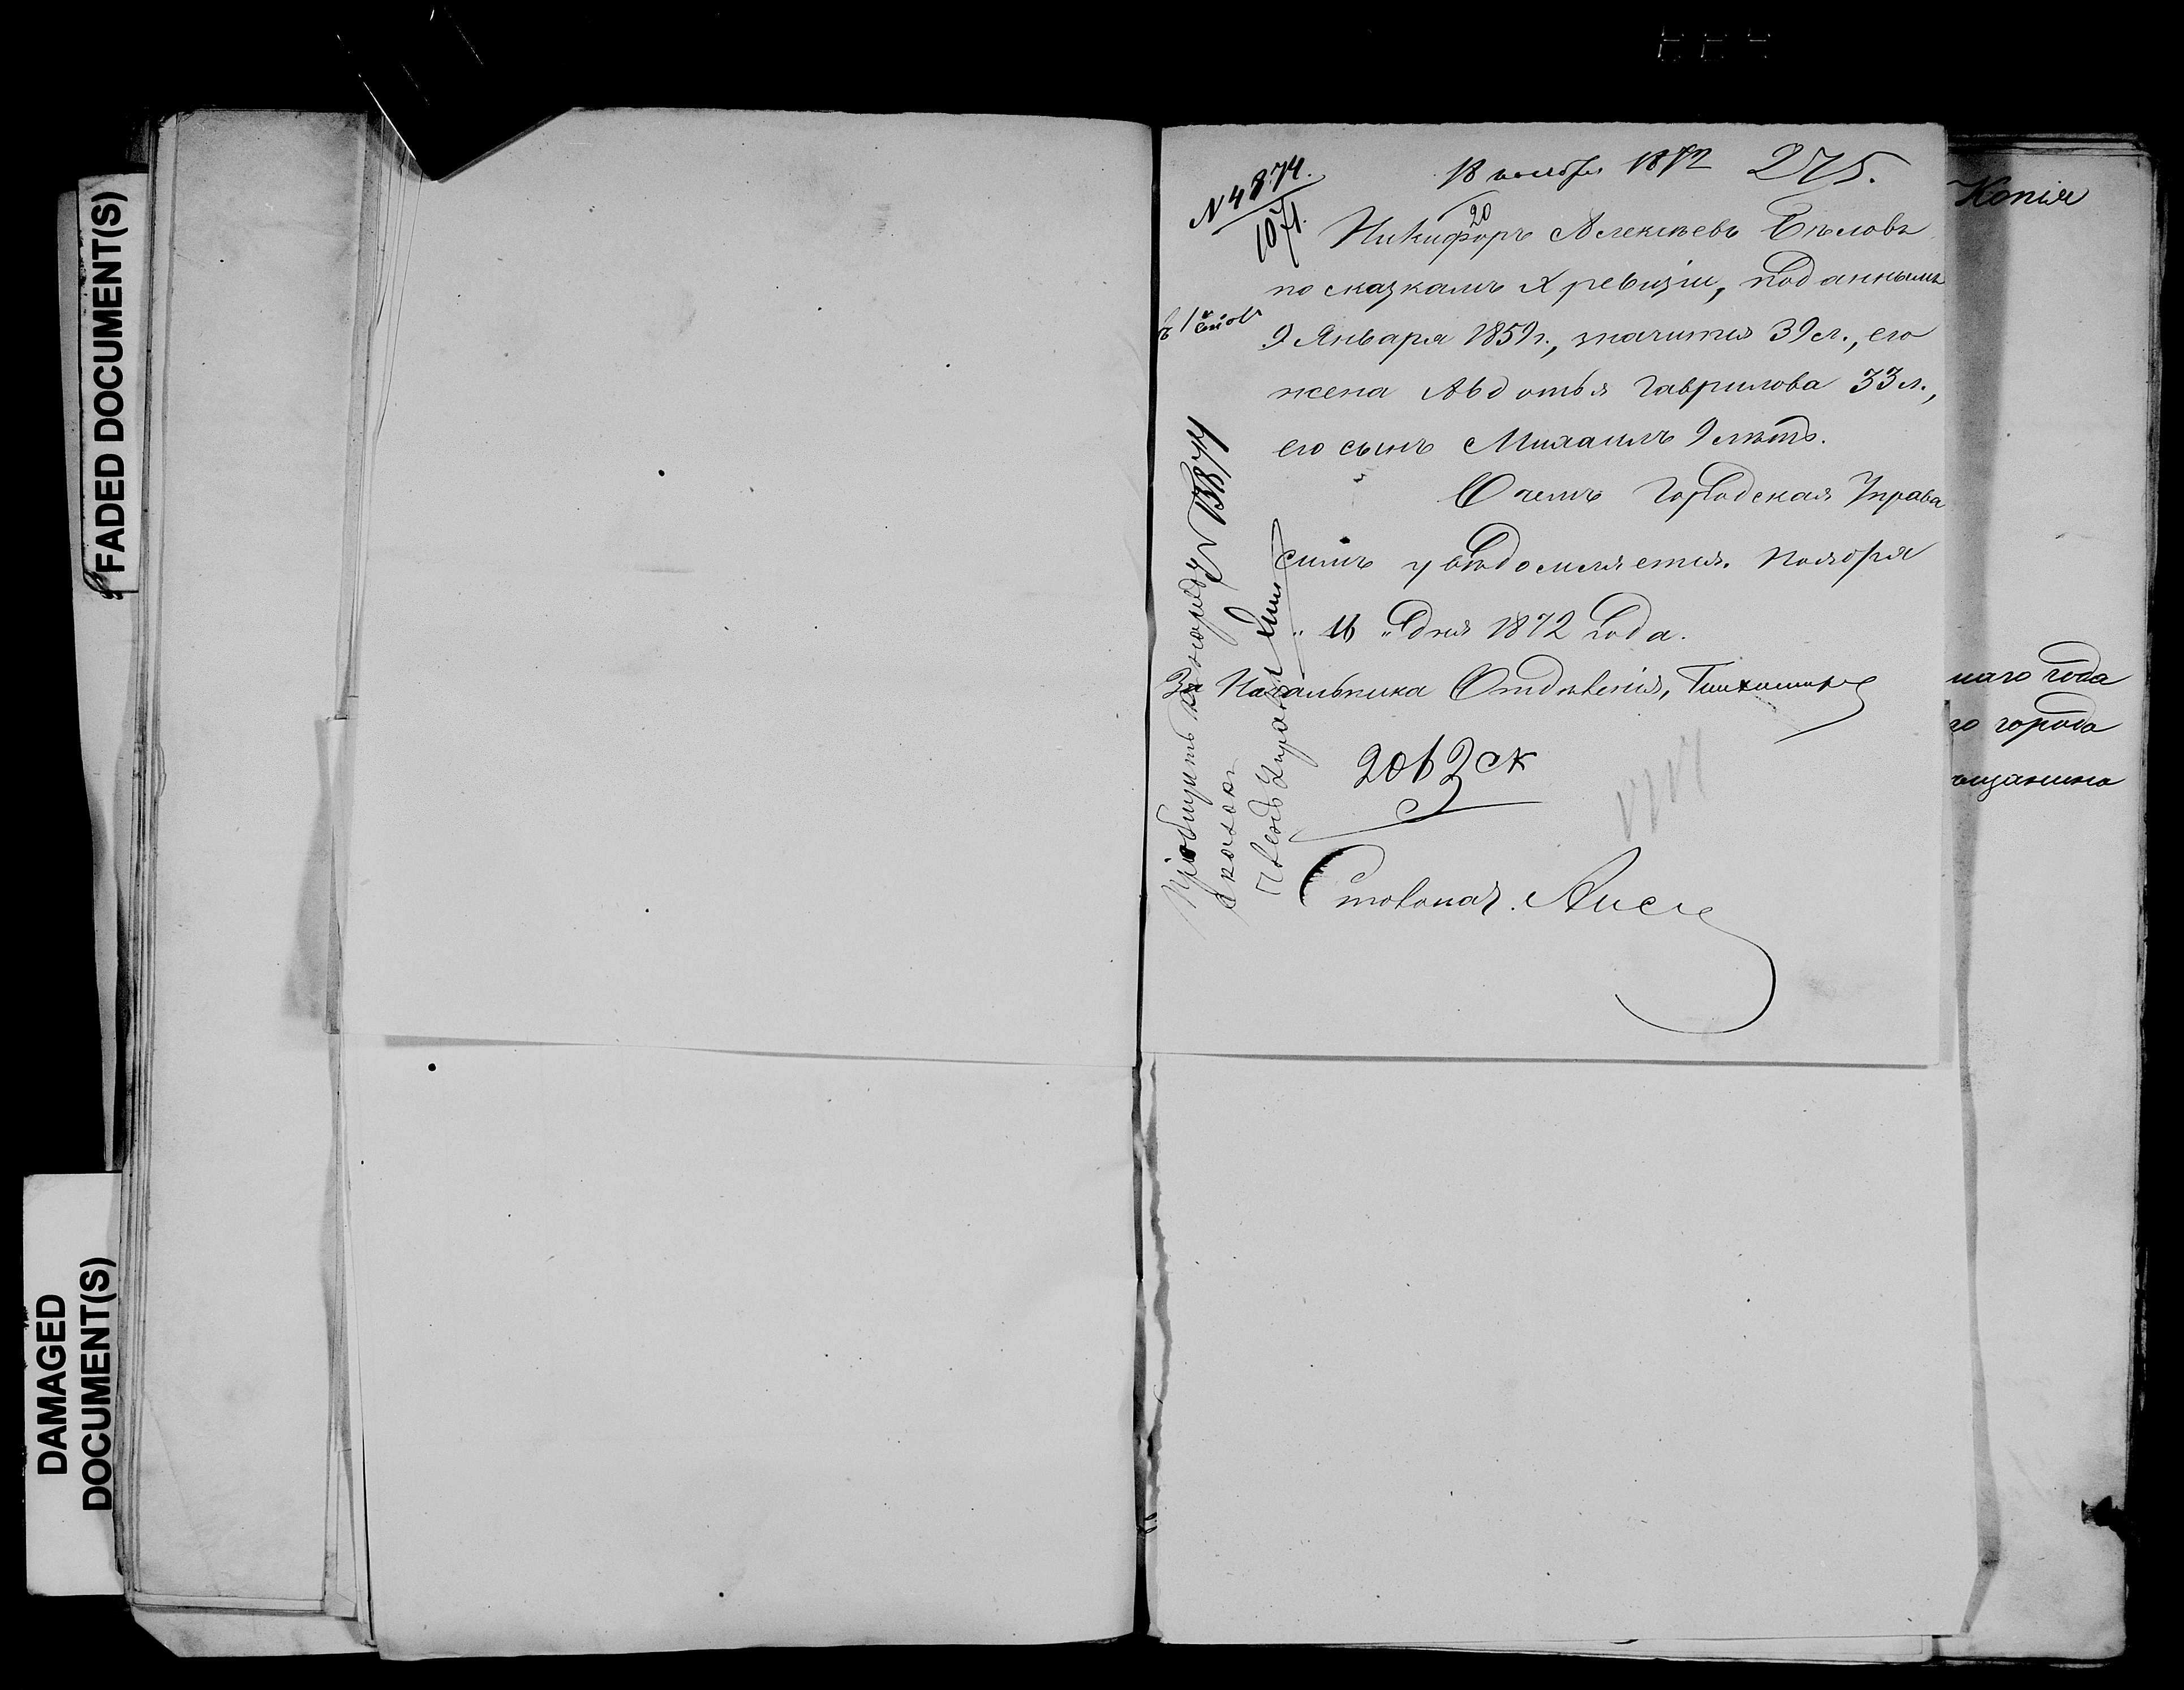 FADED DOCUMENT(S)
DAMAGED
DOCUMENT(S)
№ 4874.
1071.
18 ноября 1872 275.
20
Никифоръ Алексѣевъ Бѣловъ
по сказкамъ X ревизіи, поданнымъ
9 Января 1859 г., значится 39 л., его
жена Авдотья Гаврилова 33 л.,
его сынъ Михаилъ 9 лѣтъ.
О чемъ Городская Управа
симъ увѣдомляется. Ноября
„ 16 „ дня 1872 года.
За Начальника Отдѣленія,
Пріобщить къ
Членъ Управы
Столонач.
Копія
наго года
го города
ѣщанина